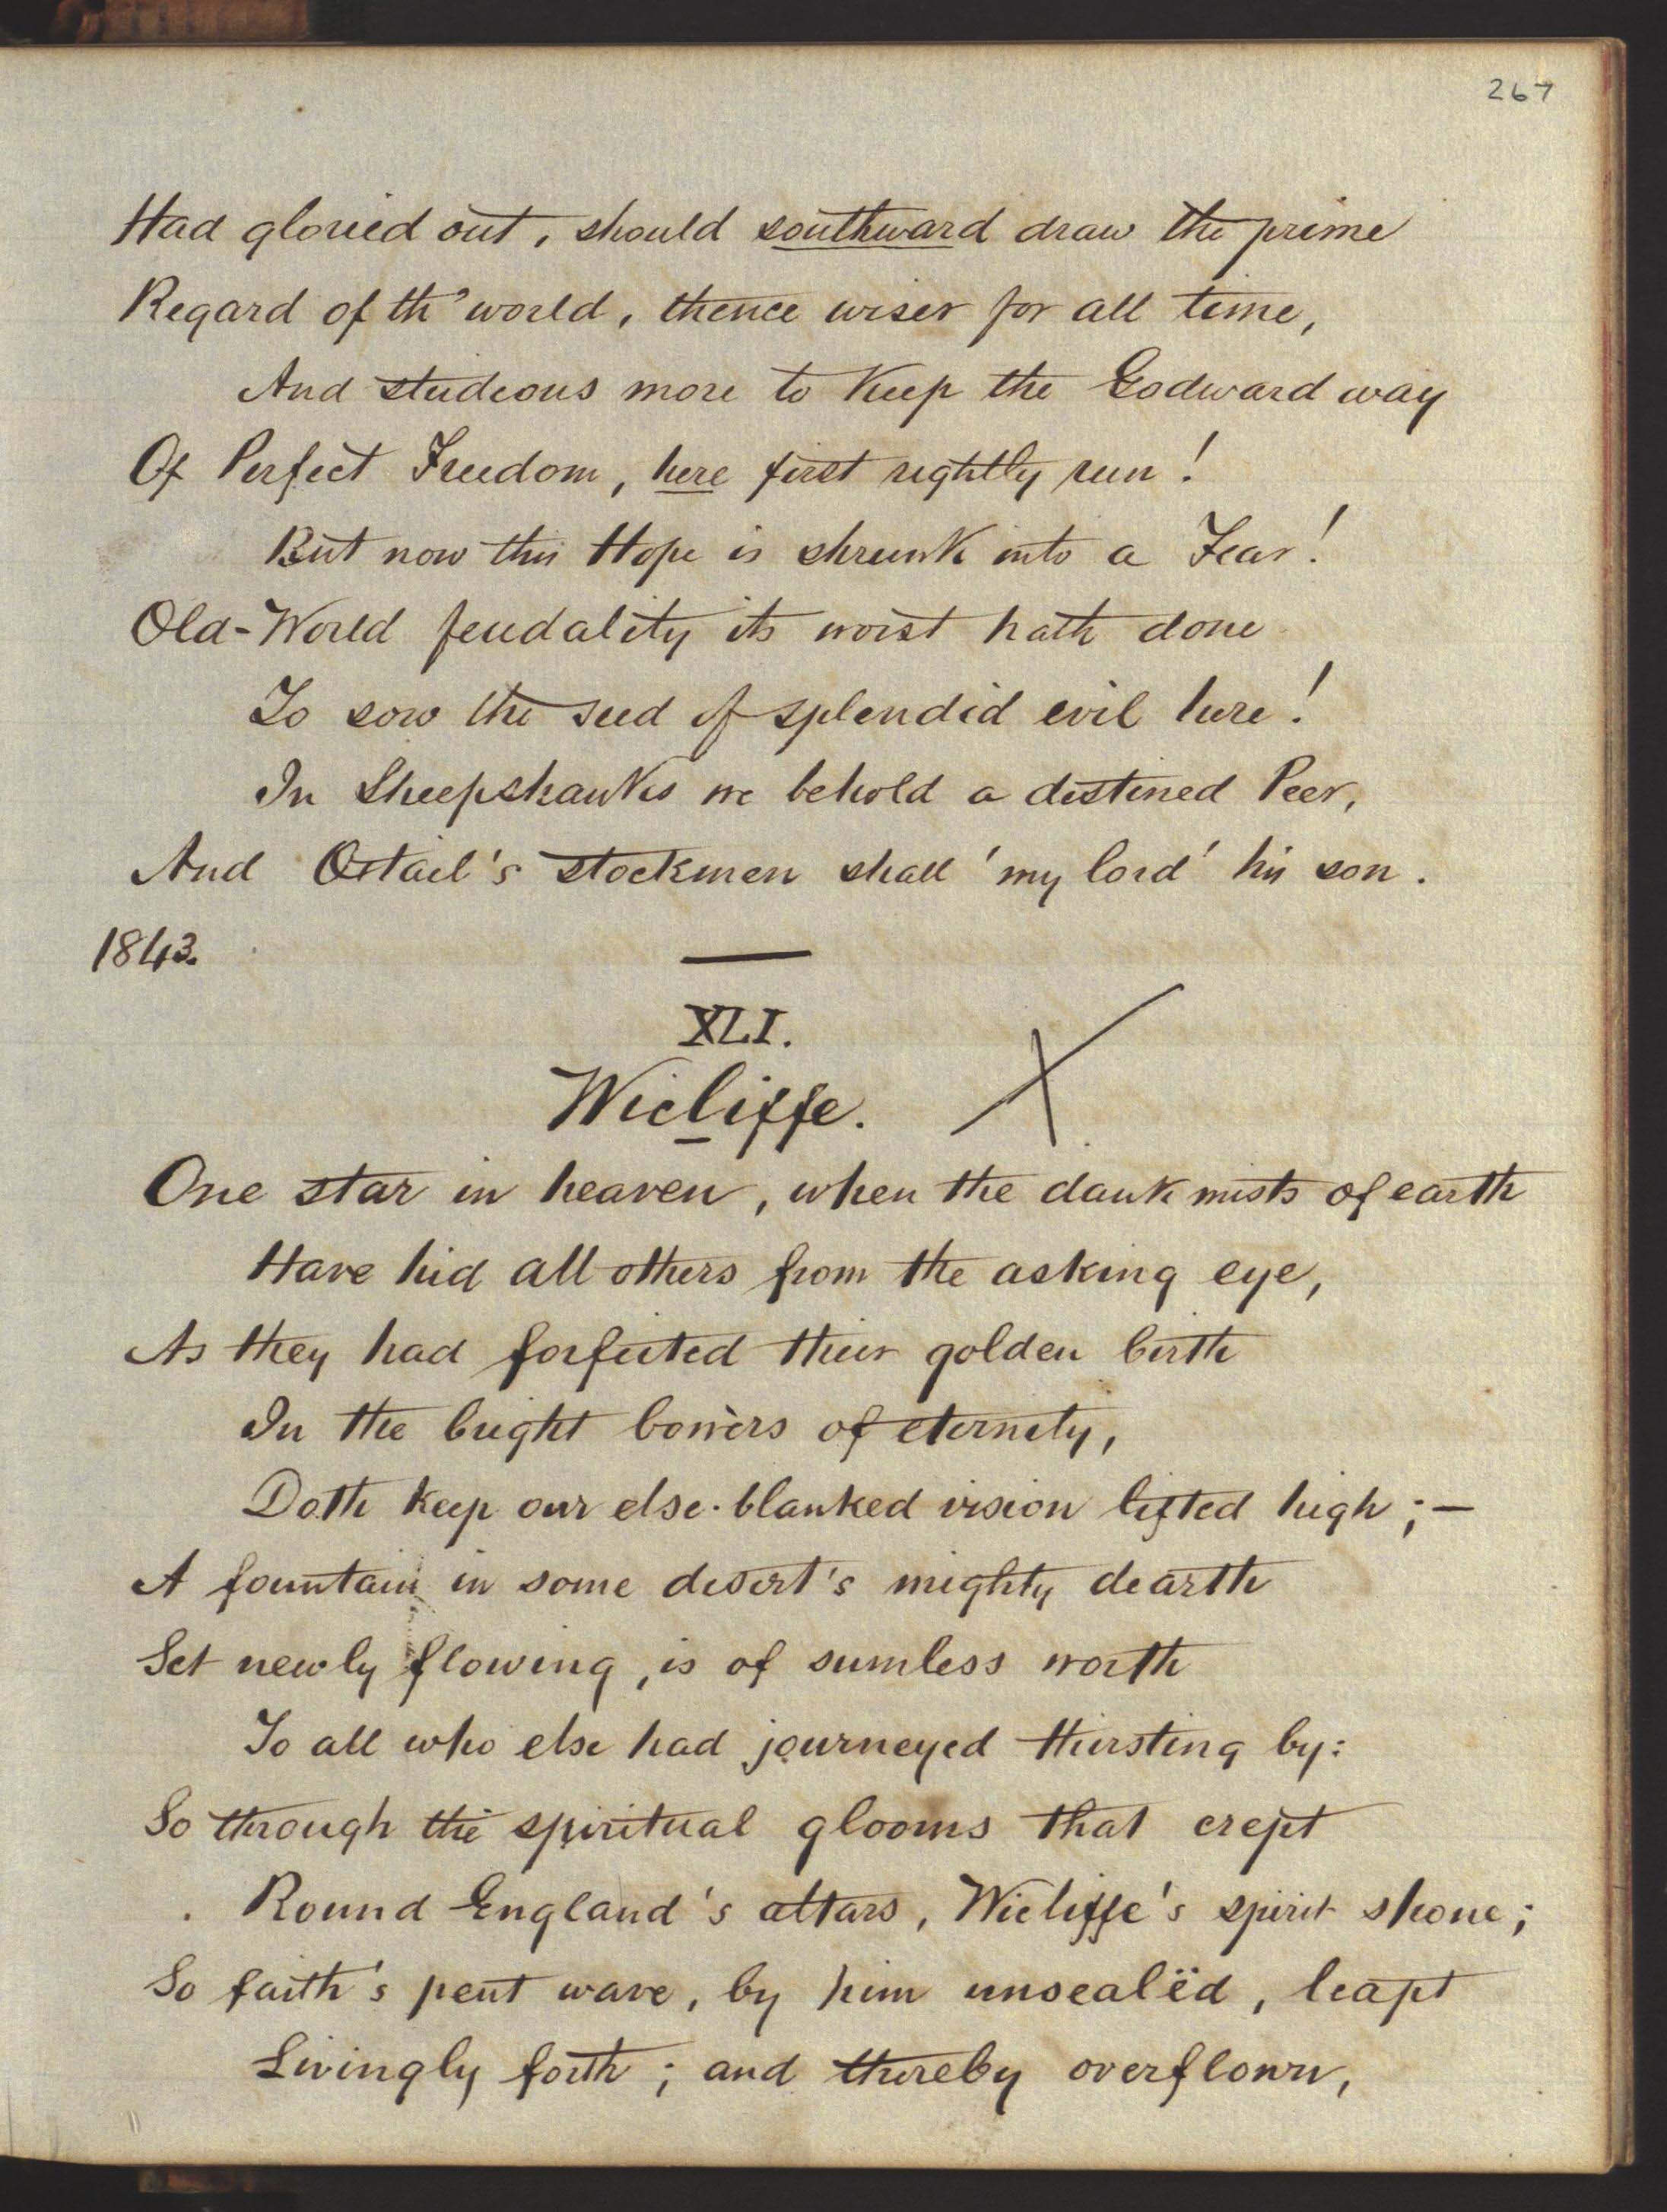 267
Had gloried out, should southward draw the prime
Regard of th' world, thence wiser for all time,
And studious more to keep the Godward way
Of Perfect Freedom, here first rightly run!
But now this Hope is shrunk into a Fear!
Old-World feudality its worst hath done
To sow the seed of splendid evil here!
In Sheepshanks we behold a destined Peer,
And Oxtail's stockmen shall 'my lord' his son.
1843.
XLI.
Wicliffe.
One star in heaven, when the dank mists of earth
Have hid all others from the asking eye,
As they had forfeited their golden birth
In the bright bowers of eternity,
Doth keep our else-blanked vision lifted high;—
A fountain in some desert's mighty dearth
Set newly flowing, is of sumless worth
To all who else had journeyed thirsting by:
So through the spiritual glooms that crept
Round England's altars, Wicliffe's spirit shone;
So faith's pent wave, by him unsealëd, leapt
Livingly forth; and thereby overflown,